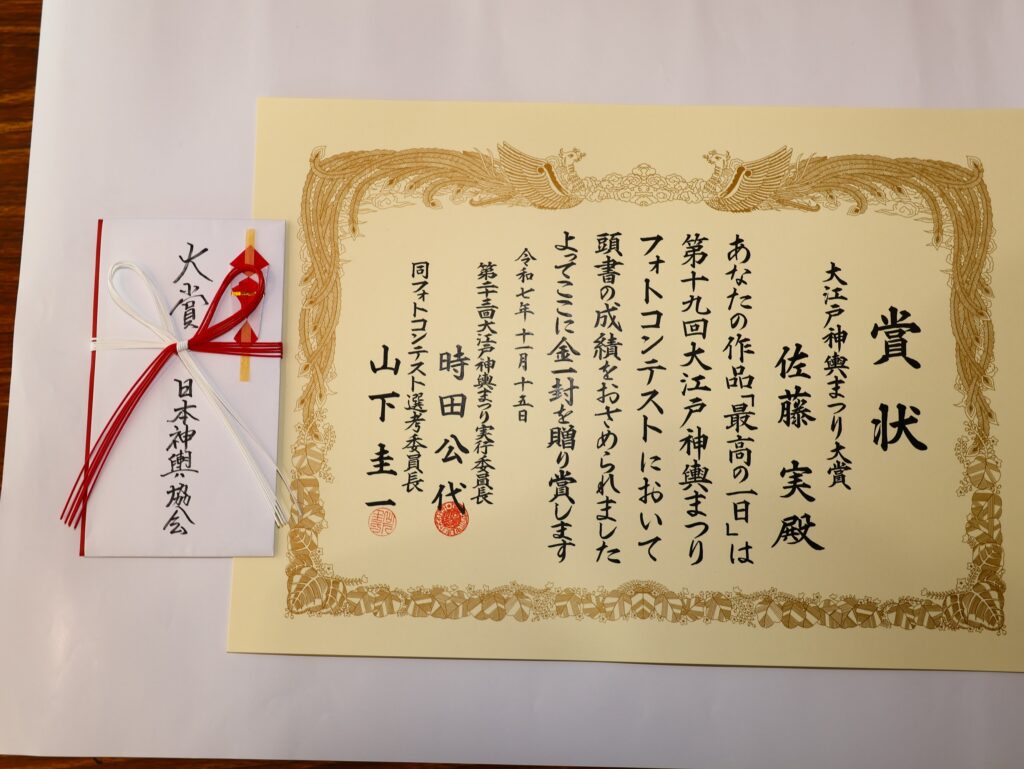 賞状
大江戸神輿まつり大賞
佐藤 実殿
あなたの作品「最高の一日」は
第十九回大江戸神輿まつり
フォトコンテストにおいて
頭書の成績をおさめられました
よってここに金一封を贈り賞します
令和七年 十一月 十五日
第二十三回大江戸神輿まつり実行委員長
時田公代
同フォトコンテスト選考委員長
山下圭一
大賞
日本神輿協会